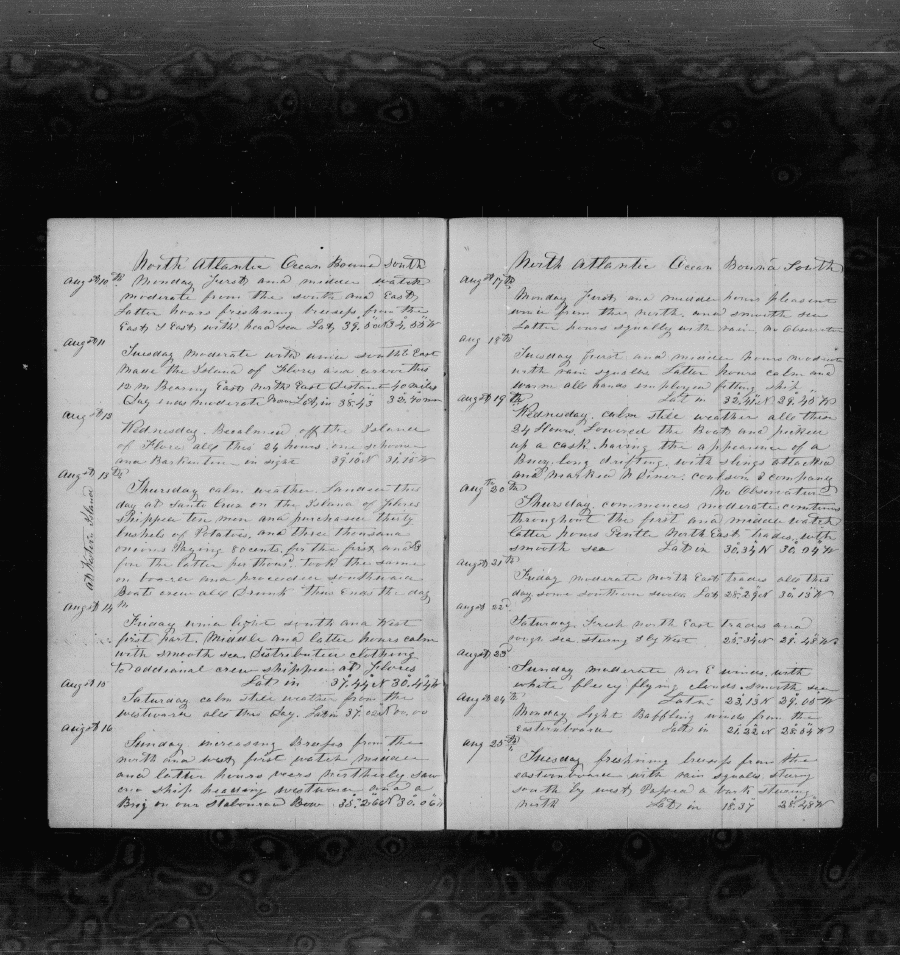 North Atlantic Ocean Bound South
August 10th
Monday First and middle watch
moderate from the south and East
Latter hours freshning breeses from the
East & East with head sea Lat 39.50 N 34.55 W
August 11
Tuesday moderate with wind south & East
Made the Island of Flores and at this
12 M Bearing East North East Distant 40 miles
Day ends moderate Lat in 38.43 32.40
August 12
Wednesday. Becalmed off the Island
of Flores all this 24 hours. one schooner
and Barkentine in sight 39.10 N 31.15 W
August 13th
At Western Island
Thursday calm weather. Landed this
day at Santa Cruz on the Island of Flores
shipped ten men and purchased thirty
bushels of Potatoes, and three thousand
onions Paying 80 cents for the first and
for the latter per thous'd. took the same
on board and proceeded southward
Boats crew all Drunk thus Ends the day
August 14
Friday wind light south and West
first part. Middle and latter hours calm
with smooth sea. Distributed clothing
to addianal crew shipped at Flores
Lat in 37.44 N 30.44 W
August 15
Saturday calm still weather from the
westward all this Day. Lat in 37.
August 16
Sunday increasing Breeses from the
north and west first watch middle
and latter hours more northerly saw
one ship heading westward and a
Brig on our Starboard Bow 35.26 N 30.06 W
North Atlantic Ocean Bound South
August 17th
Monday first and middle hours pleasant
wind from the north. and smooth sea
Latter hours squally with rain No Observation
Aug 18th
Tuesday first and middle hours moderate
with rain squalls Latter hours calm and
warm all hands employed fitting ship
Lat in 32.41 N 29.45 W
August 19th
Wednesday. calm still weather all these
24 Hours. Lowered the Boat and picked
up a cask having the appearance of a
Buoy long drifting with slings attached
and marked N Diner. coulson & company
No Observation
Aug 20th
Thursday commences moderate continues
throughout the first and middle watch
latter hours Gentle North East trades with
smooth sea Lat in 30.34 N 30.04 W
August 21st
Friday moderate North East trades all this
day some southern swell Lat 28.29 N 30.13 W
August 22d
Saturday. Fresh north East trades and
rough sea. stering S by West 25.34 N 29.48 W
August 23d
Sunday moderate nor E winds with
white fleecy flying clouds. smooth sea
Lat in 23.13 N 29.05 W
August 24th
Monday Light Baffling winds from the
eastern board Lat in 21.22 N 28.54 W
Aug 25th
Tuesday freshning breese from the
eastern board with rain squalls stering
south by west Passed a bark steering
north Lat in 18.37 28.48 W